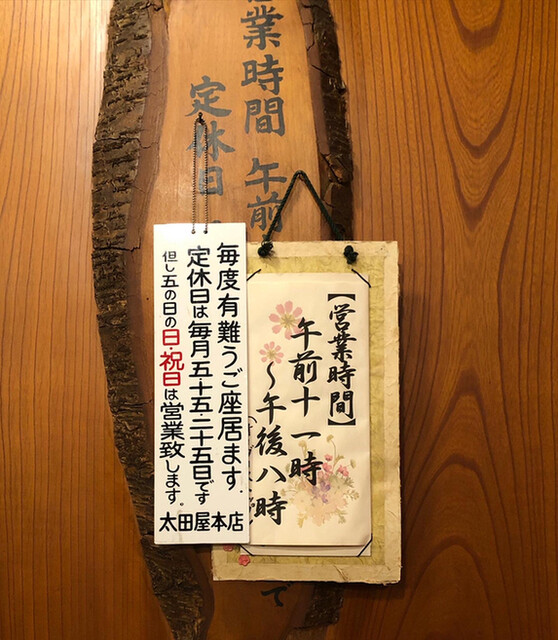 営業時間 午前
定休日
【営業時間】
午前十一時
～午後八時
毎度有難うご座居ます.
定休日は毎月五・十五・二十五日です
但し五の日の日・祝日は営業致します。
太田屋本店
て